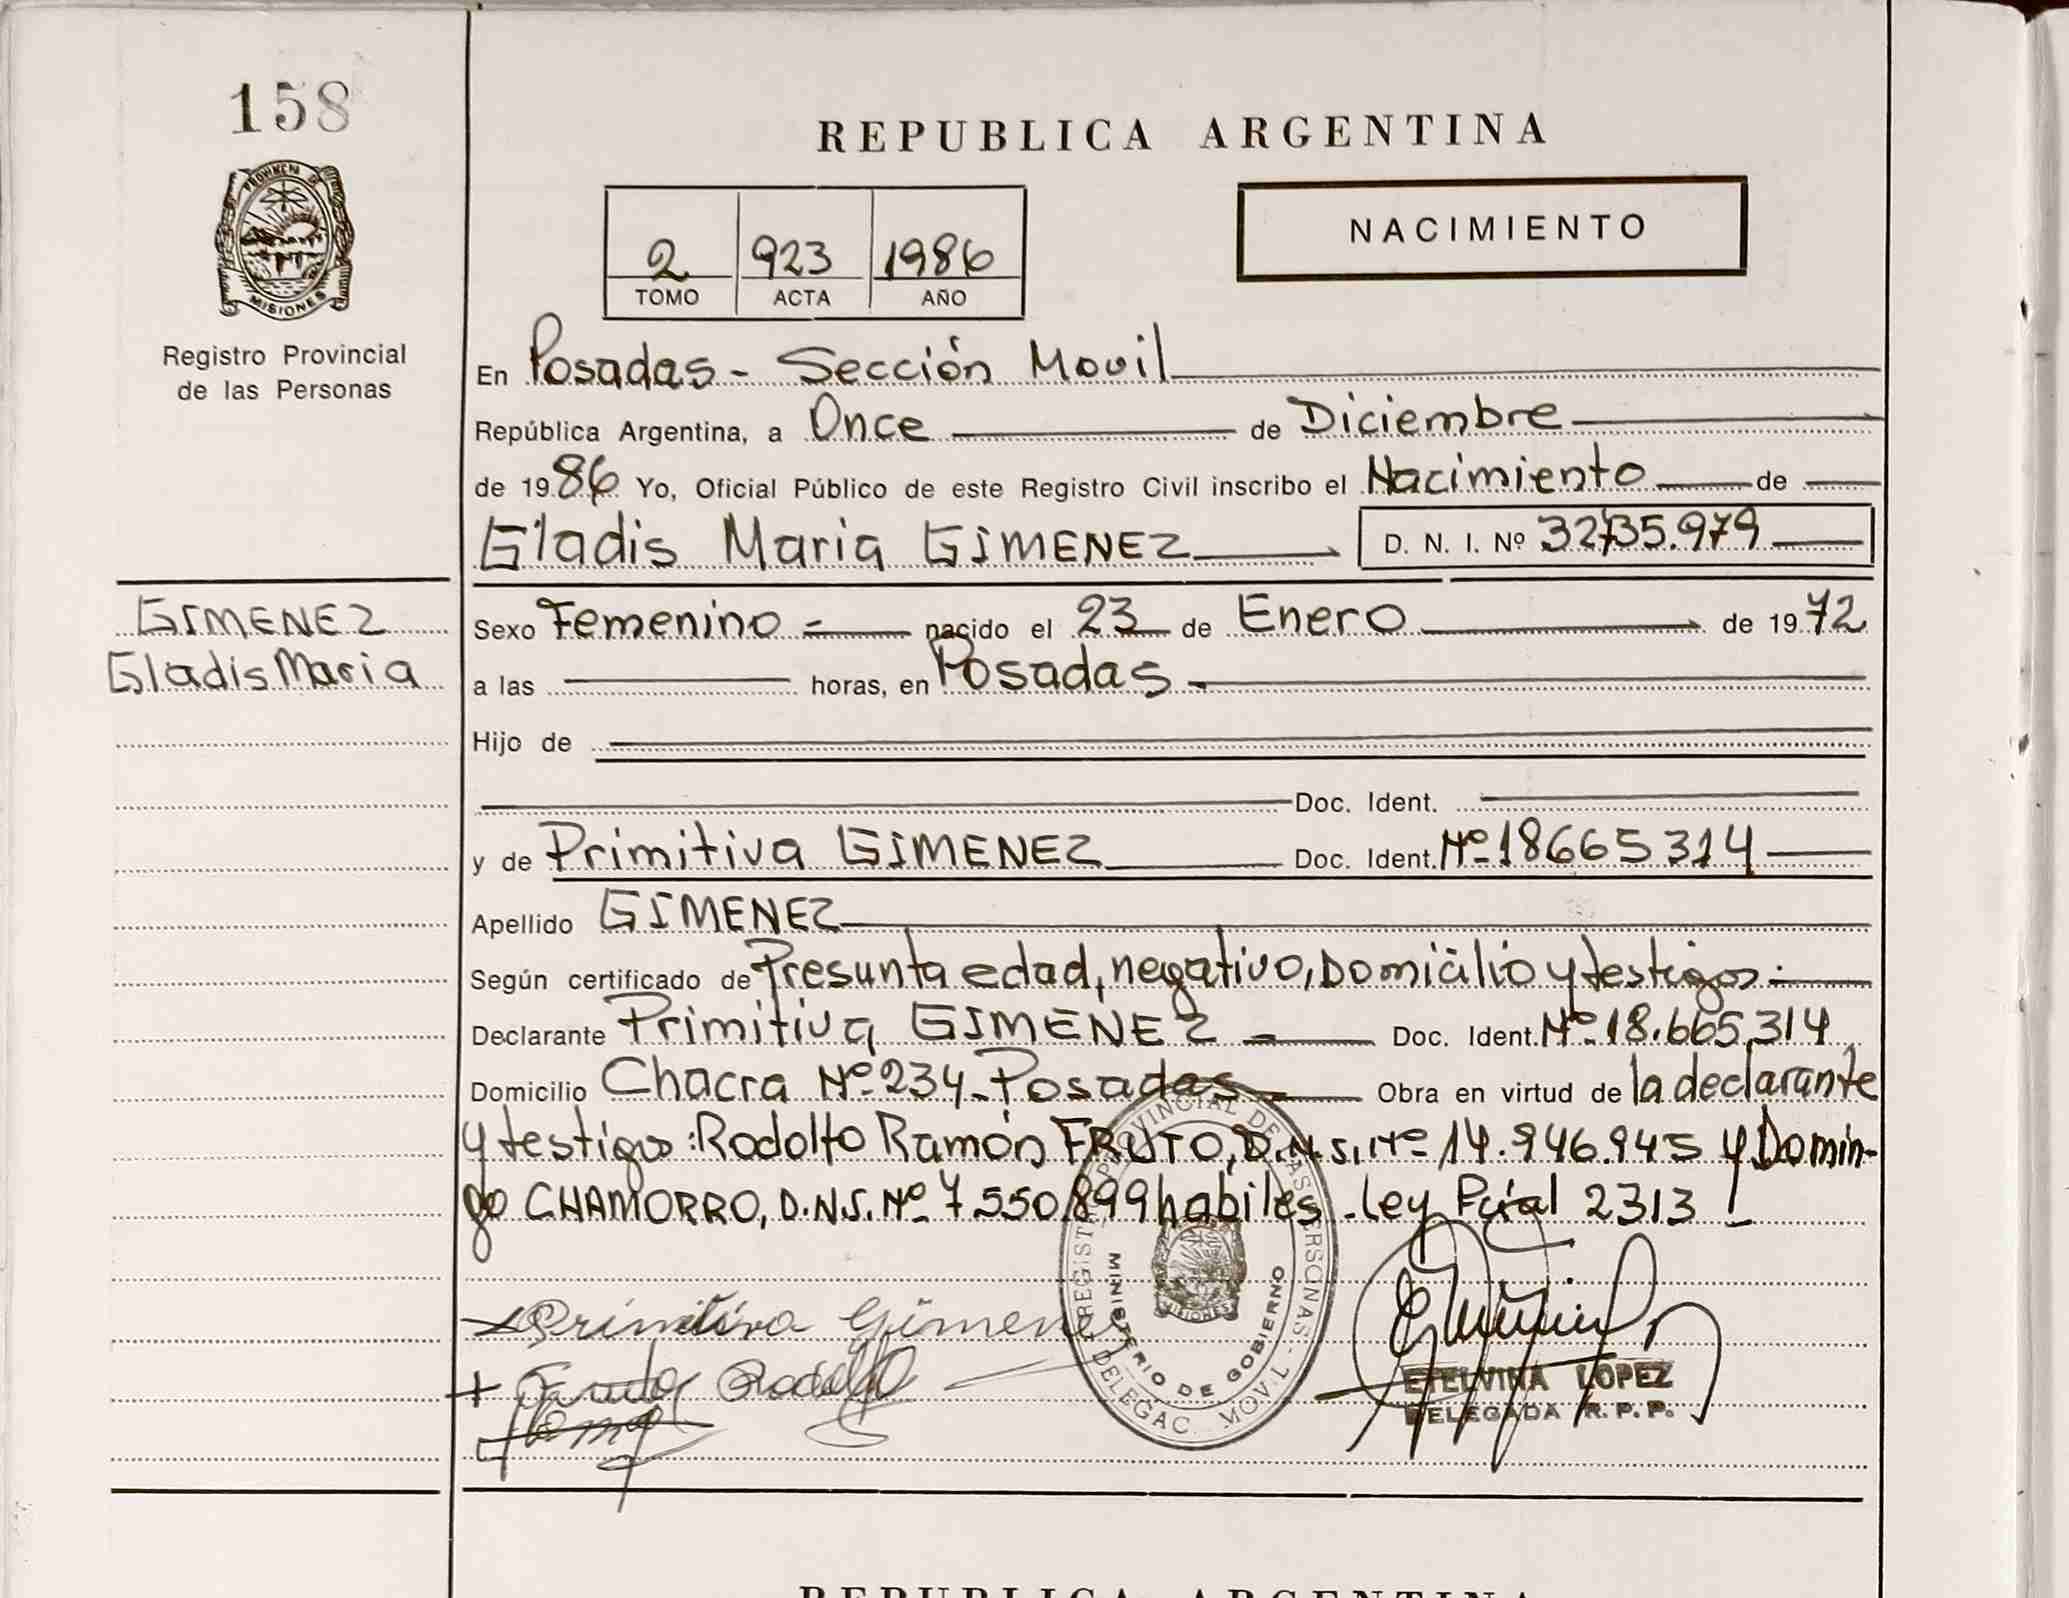 158
PROVINCIA DE
MISIONES
Registro Provincial
de las Personas
REPUBLICA ARGENTINA
2 923 1986
TOMO ACTA AÑO
NACIMIENTO
En Posadas - Sección Movil
República Argentina, a Once de Diciembre
de 1986 Yo, Oficial Público de este Registro Civil inscribo el Nacimiento de
Gladis Maria GIMENEZ D. N. I. Nº 32735.979
GIMENEZ
Gladis Maria
Sexo Femenino nacido el 23 de Enero de 1972
a las horas, en Posadas
Hijo de
Doc. Ident.
y de Primitiva GIMENEZ Doc. Ident. Nº 18665314
Apellido GIMENEZ
Según certificado de Presunta edad, negativo, Domicilio y testigos
Declarante Primitiva GIMENEZ Doc. Ident. Nº 18.665.314
Domicilio Chacra Nº 234 - Posadas Obra en virtud de la declarante
y testigos: Rodolfo Ramón FRUTO, D.N.I. Nº 14.946.945 y Domin-
go CHAMORRO, D.N.I. Nº 7550.899 habiles - Ley Pcial 2313
REGISTRO PROVINCIAL DE LAS PERSONAS
MINISTERIO DE GOBIERNO
MISIONES
DELEGAC. MOVIL
Primitiva Gimenez
Fruto Rodolfo
ETELVINA LOPEZ
DELEGADA R. P. P.
REPUBLICA ARGENTINA